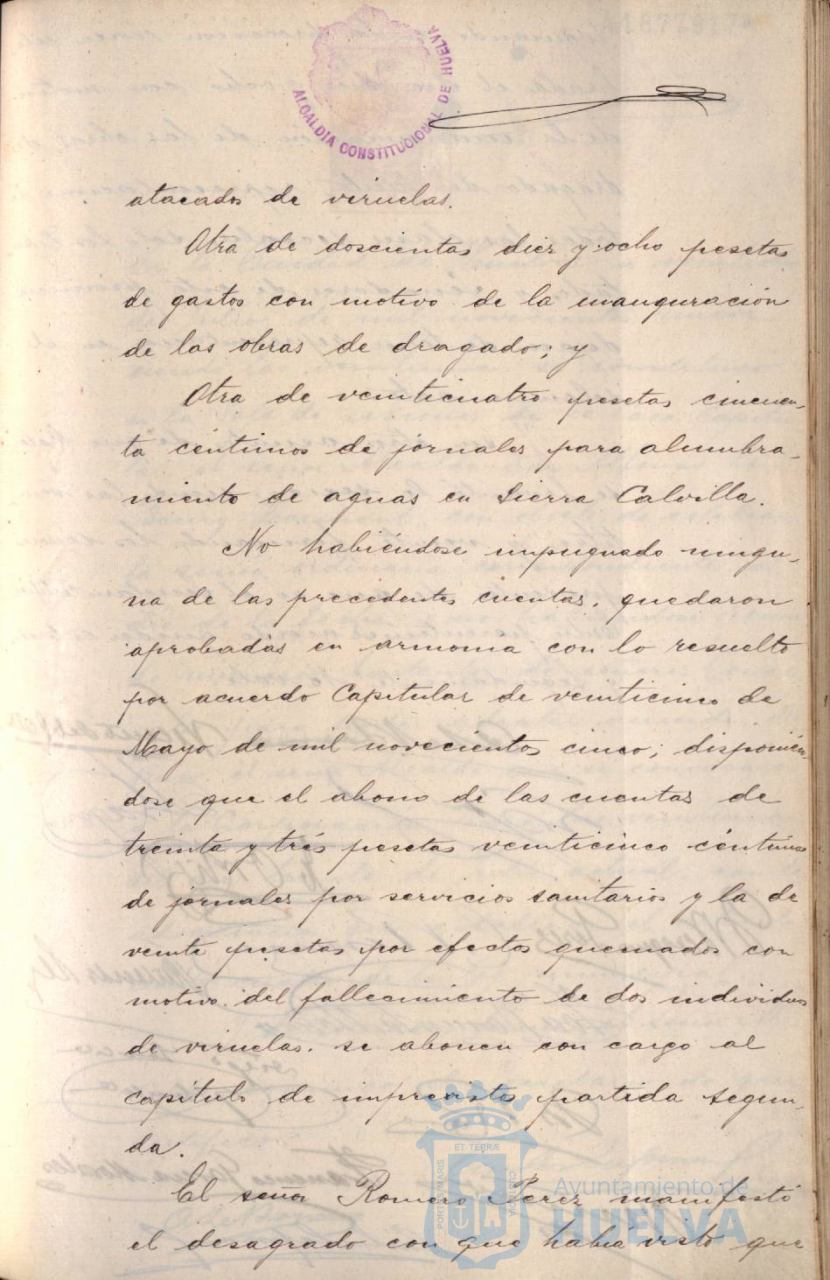 ALCALDIA CONSTITUCIONAL DE HUELVA
atacados de viruelas.
Otra de doscientas diez y ocho pesetas
de gastos con motivo de la inauguración
de las obras de dragado; y
Otra de veinticuatro pesetas cincuen-
ta céntimos de jornales para alumbra-
miento de aguas en Sierra Calvilla.
No habiéndose impugnado ningu-
na de las precedentes cuentas, quedaron
aprobadas en armonia con lo resuelto
por acuerdo Capitular de veinticinco de
Mayo de mil novecientos cinco; disponién-
dose que el abono de las cuentas de
treinta y trés pesetas veinticinco céntimos
de jornales por servicios sanitarios y la de
veinte pesetas por efectos quemados con
motivo del fallecimiento de dos individuos
de viruelas. se abonen con cargo al
capítulo de imprevistos partida segun-
da.
El señor Romero Perez manifestó
el desagrado con que habia visto que
PORTUS MARIS ET TERRÆ CUSTODIA
Ayuntamiento de
HUELVA